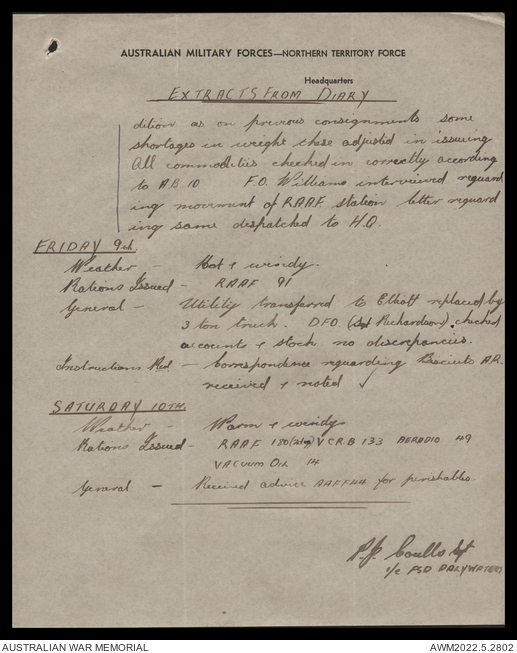 AUSTRALIAN MILITARY FORCES—NORTHERN TERRITORY FORCE
Headquarters
EXTRACTS FROM DIARY
dition as on previous consignments some
shortages in weight these adjusted in issuing
All commodities checked in correctly according
to A.B. 10 F.O. Williams interviewed reguard
ing movement of R.A.A.F. station letter reguard
ing same despatched to H.Q.
FRIDAY 9th.
Weather — Hot & windy.
Rations Issued — RAAF 91
General — Utility transferred to Elliott replaced by
3 ton truck. D.F.O. (Sgt Richardson) checked
accounts & stock no discrepancies.
Instructions Red — Correspondence reguarding Biscuits AR.
received & noted ✓
SATURDAY 10TH.
Weather — Warm & windy
Rations Issued — RAAF 150 V C.R.B 133 AERADIO 49
VACUUM OIL 14
General — Received advice for perishables.
P.J. Coulls Sgt
i/c FSD DALYWATERS
AUSTRALIAN WAR MEMORIAL
AWM2022.5.2802